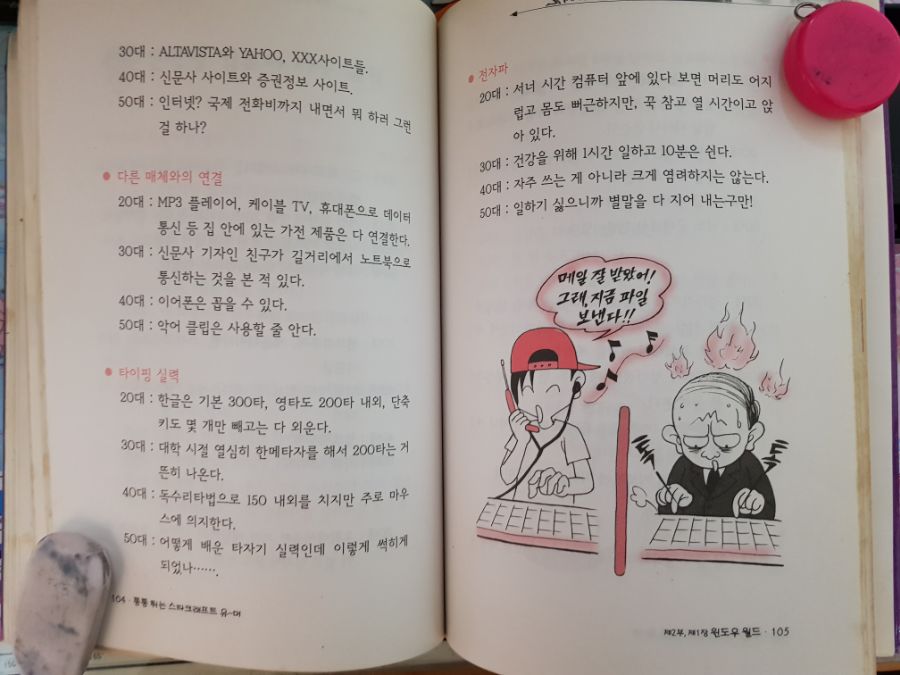 30대 : ALTAVISTA와 YAHOO, XXX사이트들.
40대 : 신문사 사이트와 증권정보 사이트.
50대 : 인터넷? 국제 전화비까지 내면서 뭐 하러 그런
걸 하나?
● 다른 매체와의 연결
20대 : MP3 플레이어, 케이블 TV, 휴대폰으로 데이터
통신 등 집 안에 있는 가전 제품은 다 연결한다.
30대 : 신문사 기자인 친구가 길거리에서 노트북으로
통신하는 것을 본 적 있다.
40대 : 이어폰은 꼽을 수 있다.
50대 : 악어 클립은 사용할 줄 안다.
● 타이핑 실력
20대 : 한글은 기본 300타, 영타도 200타 내외, 단축
키도 몇 개만 빼고는 다 외운다.
30대 : 대학 시절 열심히 한메타자를 해서 200타는 거
뜬히 나온다.
40대 : 독수리타법으로 150 내외를 치지만 주로 마우
스에 의지한다.
50대 : 어떻게 배운 타자기 실력인데 이렇게 썩히게
되었나…….
104 · 통통 튀는 스타크래프트 유~머
● 전자파
20대 : 서너 시간 컴퓨터 앞에 있다 보면 머리도 어지
럽고 몸도 뻐근하지만, 꾹 참고 열 시간이고 앉
아 있다.
30대 : 건강을 위해 1시간 일하고 10분은 쉰다.
40대 : 자주 쓰는 게 아니라 크게 염려하지는 않는다.
50대 : 일하기 싫으니까 별말을 다 지어 내는구만!
메일 잘 받았어!
그래, 지금 파일
보낸다!!
톡
톡
제2부, 제1장 윈도우 월드 · 105